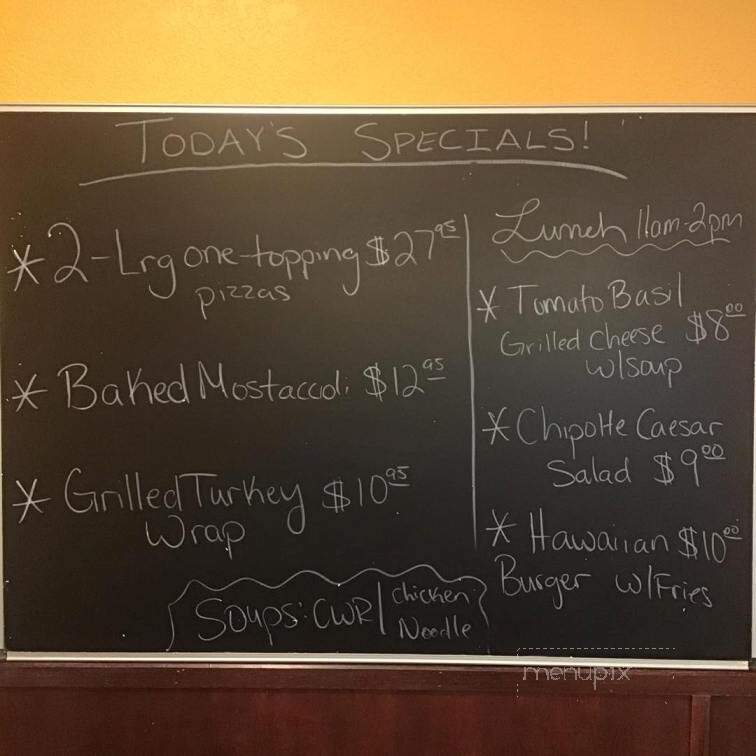 TODAY'S SPECIALS!
* 2-Lrg one-topping $27.95
pizzas
* Baked Mostaccoli $12.95
* Grilled Turkey $10.95
Wrap
Soups: CWR | Chicken
Noodle
Lunch 11am-2pm
* Tomato Basil
Grilled Cheese $8.00
w/soup
* Chipotle Caesar
Salad $9.00
* Hawaiian $10.00
Burger w/Fries
menupix